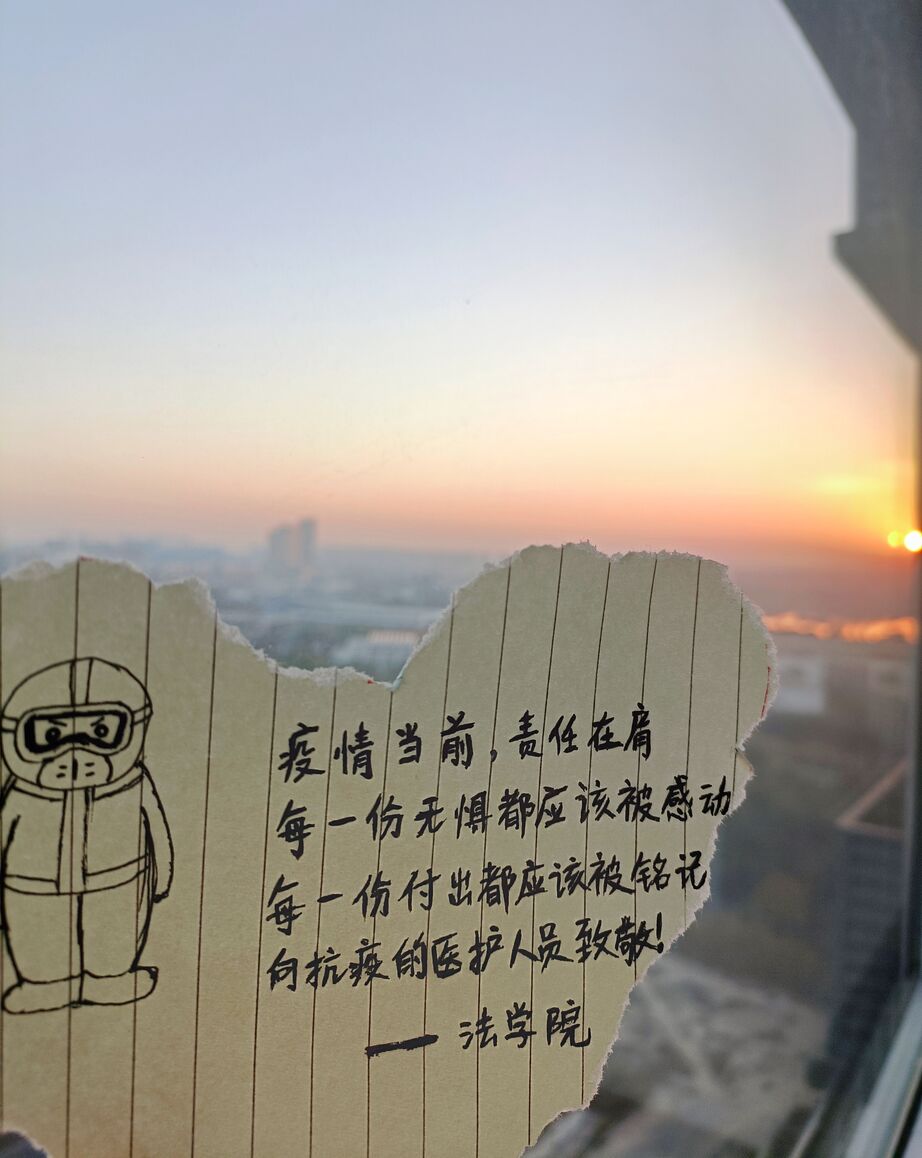 疫情当前,责任在肩
每一份无惧都应该被感动
每一份付出都应该被铭记
向抗疫的医护人员致敬!
— 法学院